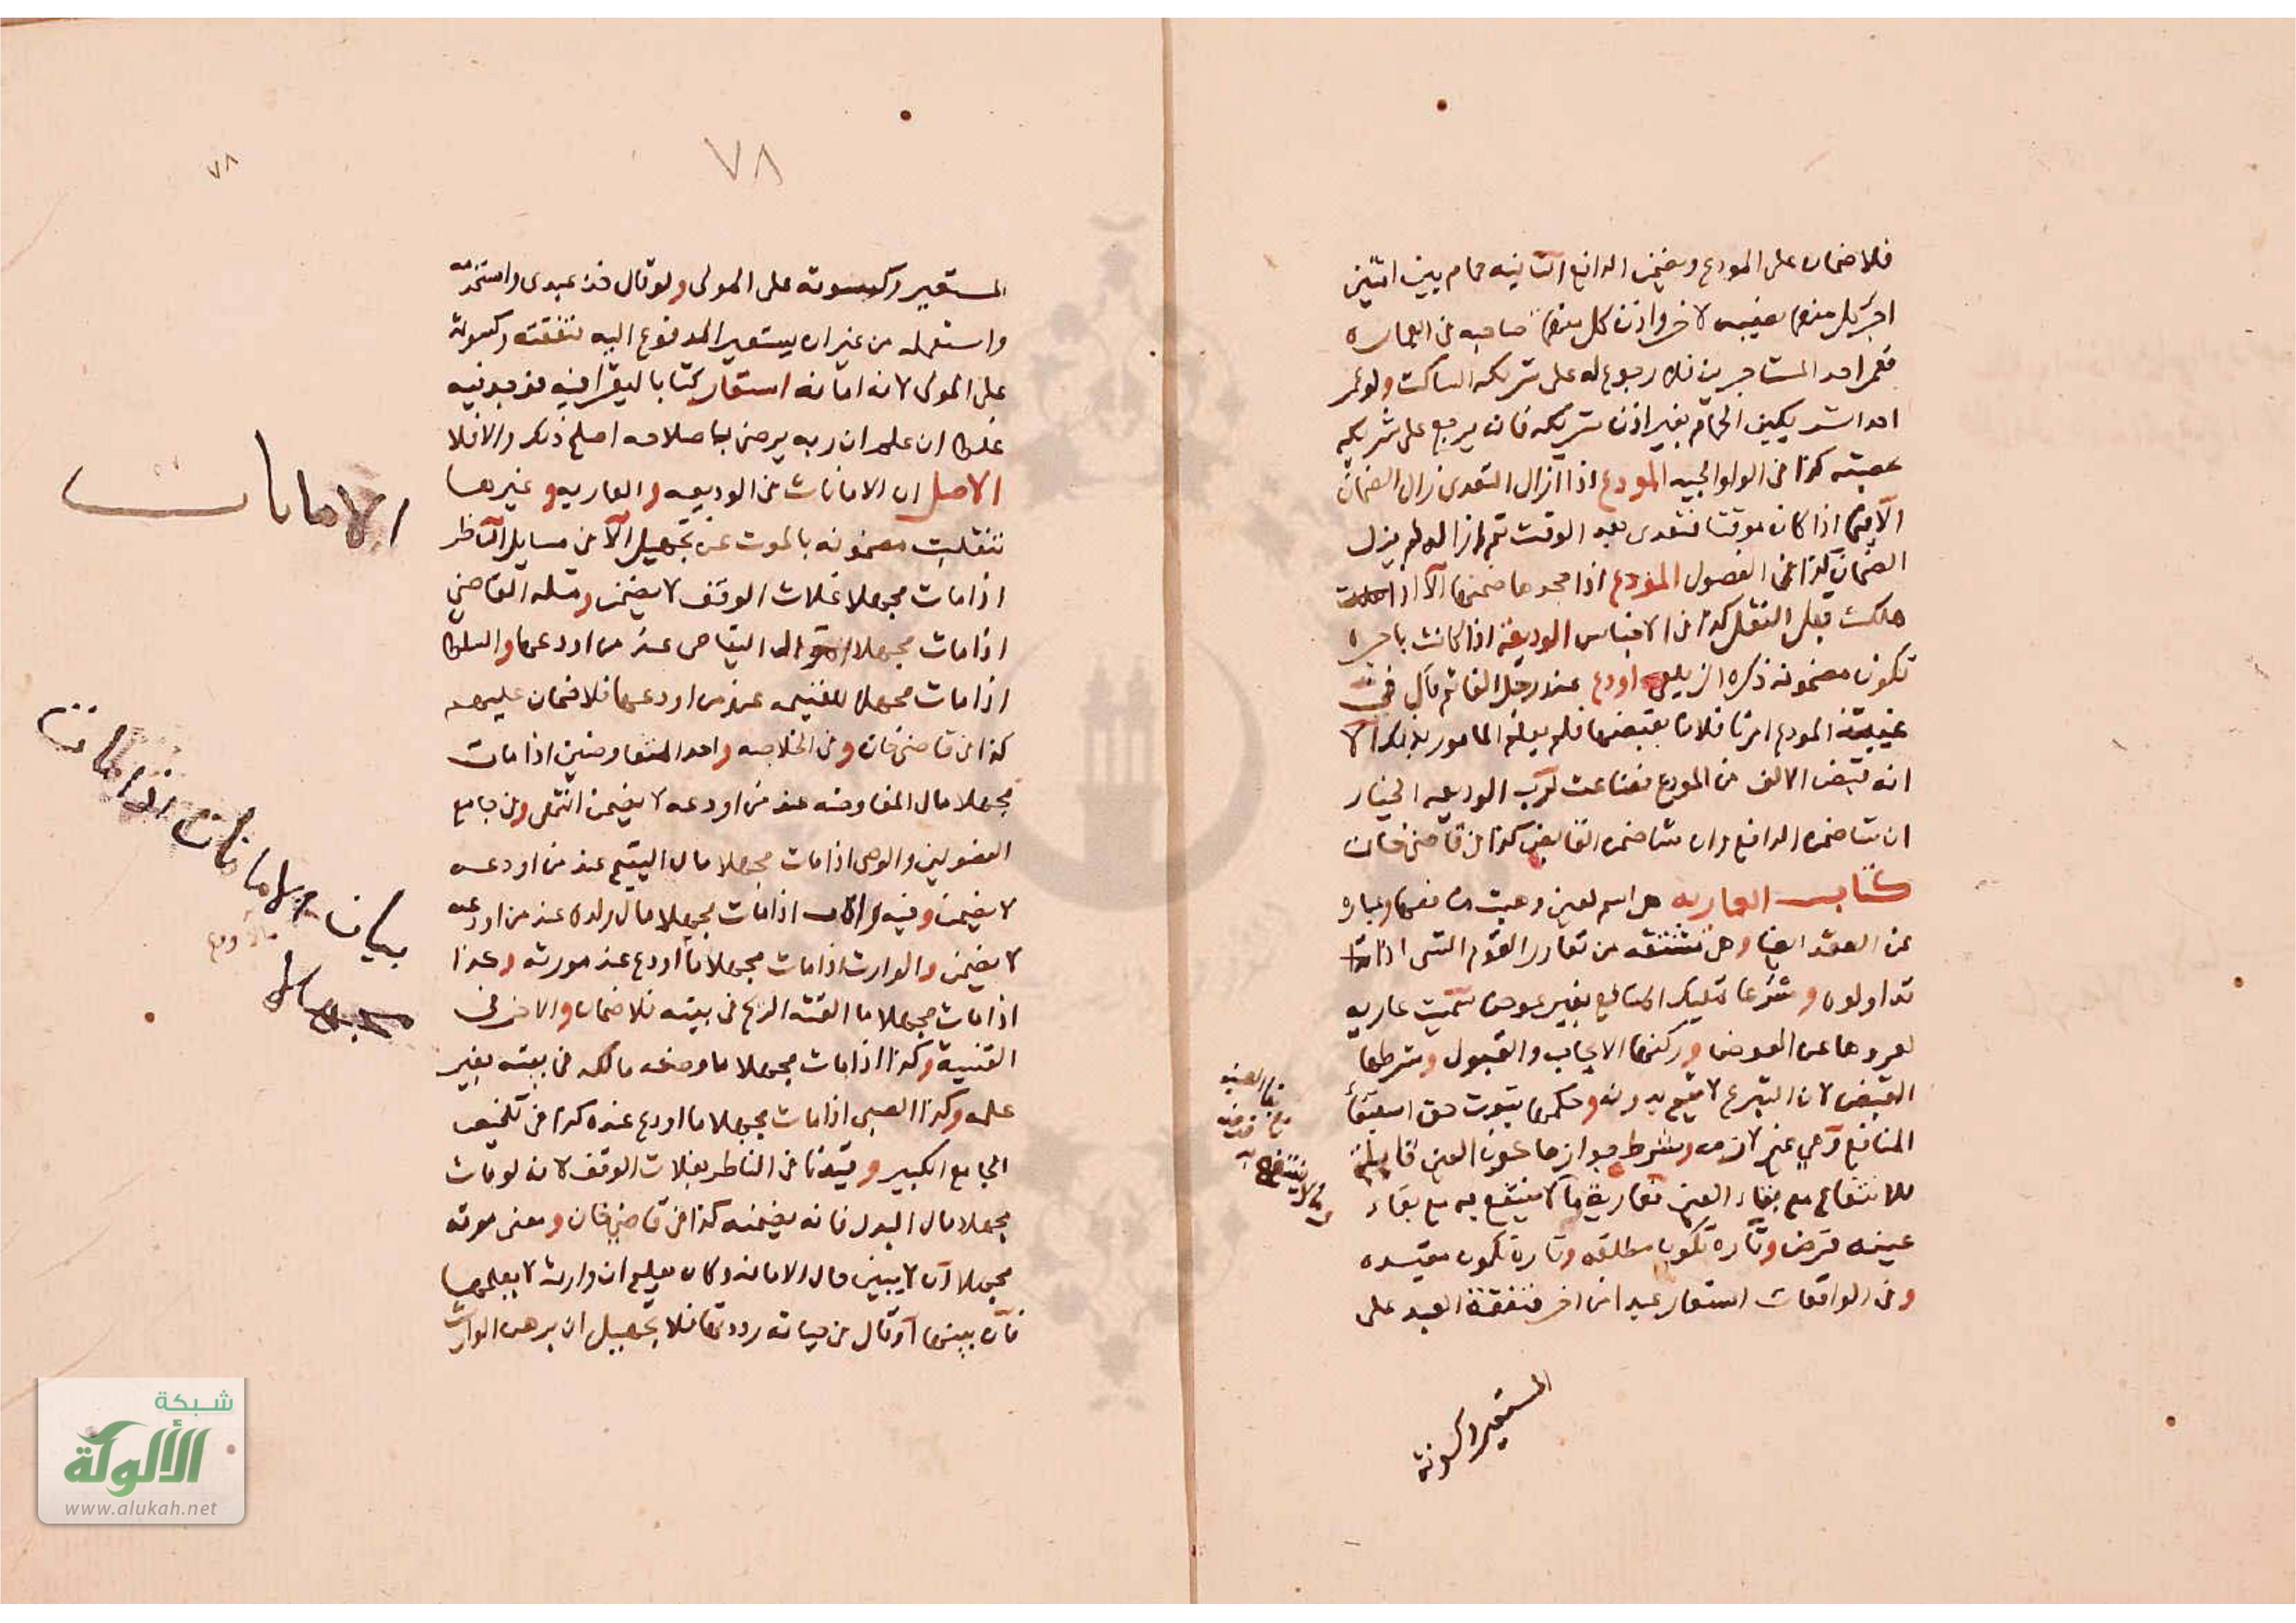 فلا ضمان على المودع ويضمن الدافع الثانيه حمام بين اثنين
اجر كل منهما نصيبه لاخر واذن كل منهما صاحبه في العماره
فعمر احد المستاجرين فلا رجوع له على شريكه الساكت ولو عمر
احد الشريكين الحمام بغير اذن شريكه فانه يرجع على شريكه
بحصته كذا في الولوالجيه المودع اذا ازال التعدى زال الضمان
الا فيما اذا كان موقتا فتعدى بعد الوقت ثم ازاله لم يزل
الضمان كذا في الفصول المودع اذا جحدها ضمنها الا اذا
هلكت قبل النقل كذا في الاجناس الوديعة اذا كانت باجره
تكون مضمونه ذكره الزيلعي اودع عند رجل الفا ثم قال في
غيبة المودع امرت فلانا بقبضها فلم يعلم المامور بذلك الا
انه قبض الالف من المودع فضاعت لرب الوديعه الخيار
ان شا ضمن الدافع وان شا ضمن القابض كذا في قاضي خان
كتاب العاريه هل اسم لعين وهبت منافعها وعباره
عن العقد ايضا وهل مشتقه من تعاور القوم الشى اذا
تداولوه وشرعا تمليك المنافع بغير عوض سميت عاريه
لعروها عن العوض وركنها الايجاب والقبول وشرطها
القبض لان التبرع لا يتم بدونه وحكمها ثبوت حق استيفا
المنافع وهي غير لازمه وشرط جوازها كون العين قابلة
للانتفاع مع بقاء العين فعارية ما لا ينتفع به مع بقاء
عينه قرض وتاره تكون مطلقه وتارة تكون مقيده
وفي الواقعات استعار عبدا من اخر فنفقة العبد على
المستعير وكسوته
٧٨
٧٨
المستعير وكسوته على المولى ولو قال خذ عبدى واستخدمه
واستعمله من غير ان يستعير المدفوع اليه نفقته وكسوته
على المولى لانه امانه استعار كتابا ليقرا فيه فوجد فيه
غلطا ان علم ان ربه يرضى باصلاحه اصلح ذلك والا فلا
الاصل ان الامانات من الوديعه والعاريه وغيرها
تنقلب مضمونه بالموت عن تجهيل الا في مسايل الناظر
اذا مات مجهلا غلات الوقف لا يضمن ومثله القاضي
اذا مات مجهلا اموال اليتامى عند من اودعها والسلطا
اذا مات مجهلا للغنيمه عند من اودعها فلا ضمان عليهم
كذا في قاضي خان وفي الخلاصه واحد المتفاوضين اذا مات
مجهلا مال المفاوضه عند من اودعه لا يضمن انتهى وفي جامع
الفصولين والوصى اذا مات مجهلا مال اليتيم عند من اودعه
لا يضمن وفيه والاب اذا مات مجهلا مال ولده عند من اودعه
لا يضمن والوارث اذا مات مجهلا ما اودع عند مورثه وكذا
اذا مات مجهلا ما القته الريح في بيته فلا ضمان والاخر في
القنية وكذا اذا مات مجهلا ما وضعه مالكه في بيته بغير
علمه وكذا الصبى اذا مات مجهلا ما اودع عنده كذا في تلخيص
الجامع الكبير وقيدنا في الناظر بغلات الوقف لانه لو مات
مجهلا مال البدل فانه يضمنه كذا في قاضي خان ومعنى موته
مجهلا ان لا يبين حال الامانه وكان يعلم ان وارثه لا يعلمها
فان بينها او قال في حياته رددتها فلا تجهيل ان برهن الوارث
الامانات
بيان الامانات اذا مات
مجهلا
شبكة
الألوكة
www.alukah.net